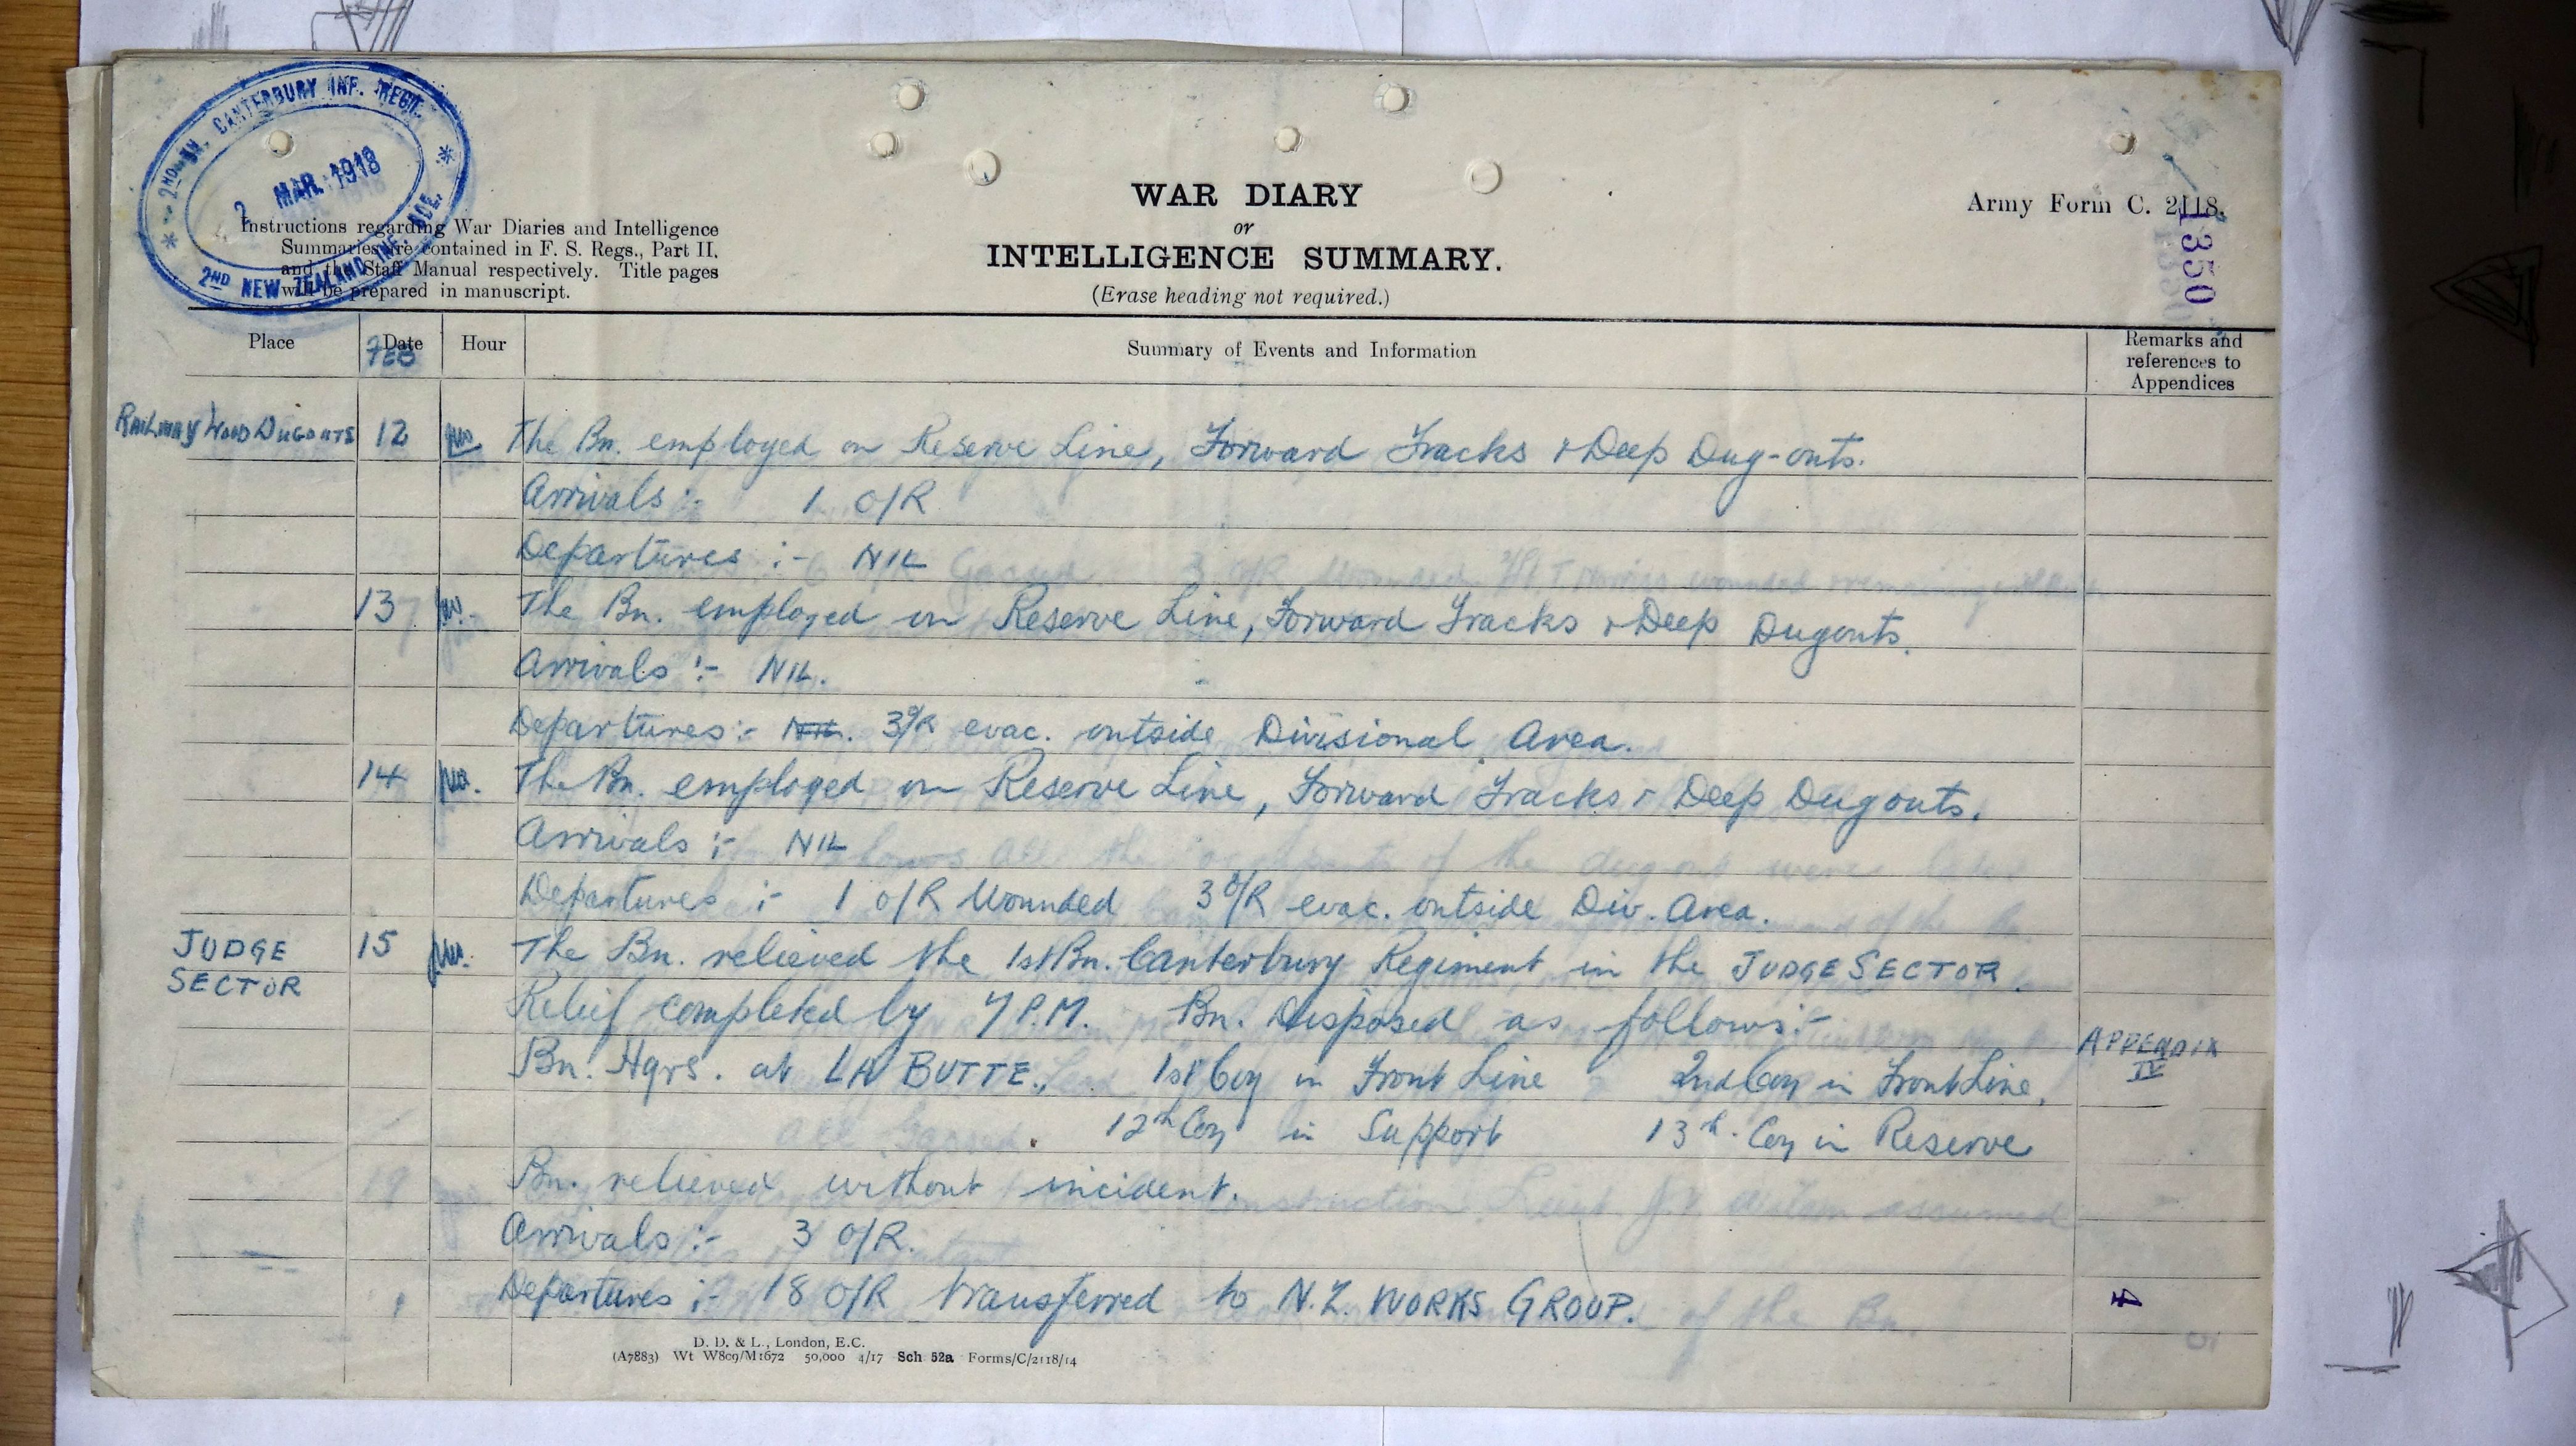 2ND BN. CANTERBURY INF. REGT.
2 MAR. 1918
2ND NEW ZEALAND INF. BDE.
Instructions regarding War Diaries and Intelligence
Summaries are contained in F. S. Regs., Part II,
and the Staff Manual respectively. Title pages
will be prepared in manuscript.
WAR DIARY
or
INTELLIGENCE SUMMARY.
(Erase heading not required.)
Army Form C. 2118.
1350
Place Date Hour Summary of Events and Information Remarks and references to Appendices
FEB
RAILWAY WOOD DUGOUTS 12 The Bn. employed on Reserve Line, Forward Tracks & Deep Dug-outs.
Arrivals :- 1 O/R
Departures :- NIL
13 The Bn. employed on Reserve Line, Forward Tracks & Deep Dugouts.
Arrivals :- NIL.
Departures :- NIL. 3 O/R evac. outside Divisional Area.
14 The Bn. employed on Reserve Line, Forward Tracks & Deep Dugouts.
Arrivals :- NIL
Departures :- 1 O/R Wounded 3 O/R evac. outside Div. Area.
JUDGE SECTOR 15 The Bn. relieved the 1st Bn. Canterbury Regiment in the JUDGE SECTOR.
Relief completed by 7 P.M. Bn. Disposed as follows :-
Bn. Hqrs. at LA BUTTE., 1st Coy in Front Line 2nd Coy in Front Line. APPENDIX IV
12th Coy in Support 13th. Coy in Reserve
Bn. relieved without incident.
Arrivals :- 3 O/R.
Departures :- 18 O/R transferred to N.Z. WORKS GROUP.
4
D. D. & L., London, E.C.
(A7883) Wt W809/M1672 50,000 4/17 Sch 52a Forms/C/2118/14